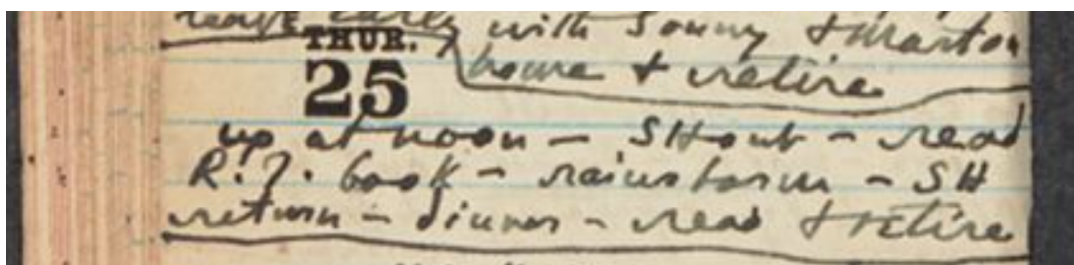 leave early with Sonny + Marton
THUR. home + retire
25
up at noon - SH out - read
R.F. book - rainstorm - SH
return - dinner - read + retire